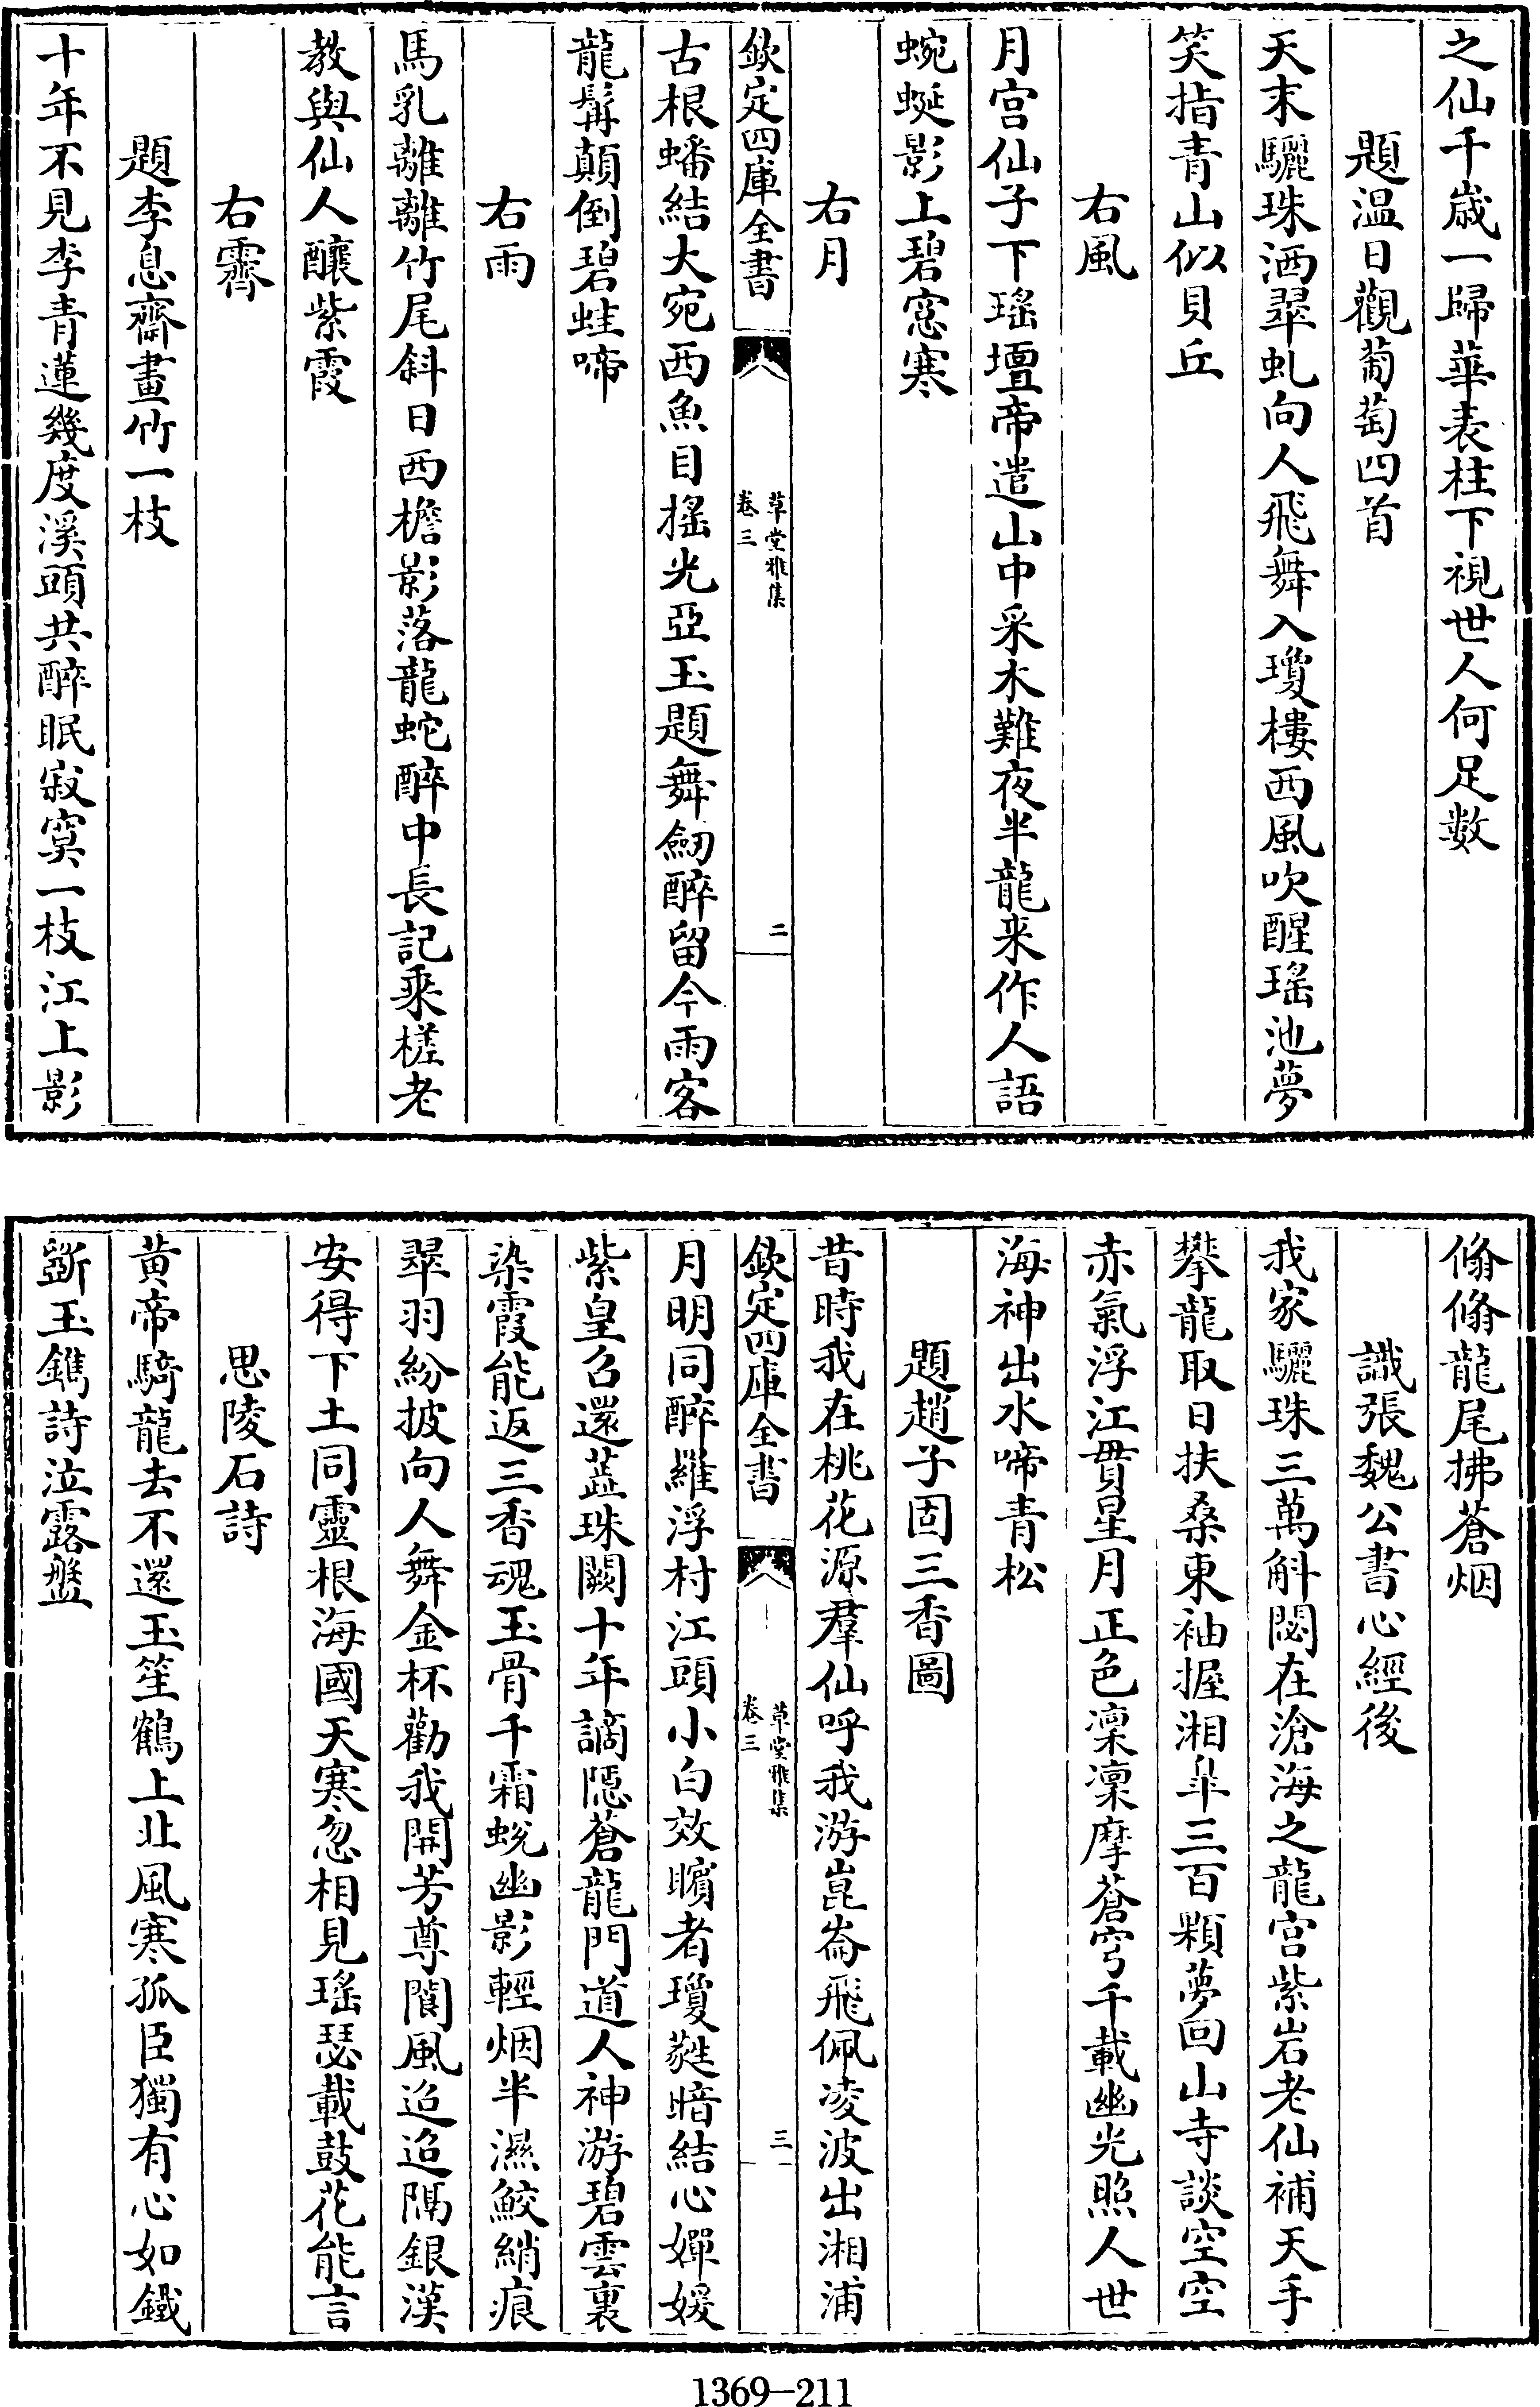 之仙千歲一歸華表柱下視世人何足數
題温日觀葡萄四首
天末驪珠洒翠虬向人飛舞入瓊樓西風吹醒瑤池夢
笑指青山似貝丘
右風
月宫仙子下瑤壇帝遣山中采木難夜半龍来作人語
蜿蜒影上碧窓寒
右月
欽定四庫全書
草堂雅集
卷三
二
古根蟠結大宛西魚目揺光亞玉題舞劒醉留今雨客
龍髯顛倒碧蛙啼
右雨
馬乳離離竹尾斜日西檐影落龍蛇醉中長記乘槎老
教與仙人釀紫霞
右霽
題李息齋畫竹一枝
十年不見李青蓮幾度溪頭共醉眠寂寞一枝江上影
翛翛龍尾拂蒼烟
識張魏公書心經後
我家驪珠三萬斛閟在滄海之龍宫紫岩老仙補天手
攀龍取日扶桑東袖握湘臯三百顆夢回山寺談空空
赤氣浮江貫星月正色凜凜摩蒼穹千載幽光照人世
海神出水啼青松
題趙子固三香圖
昔時我在桃花源羣仙呼我游崑崙飛佩凌波出湘浦
欽定四庫全書
草堂雅集
卷三
三
月明同醉羅浮村江頭小白效矉者瓊蕤暗結心嬋媛
紫皇召還蕋珠闕十年謫隱蒼龍門道人神游碧雲裏
染霞能返三香魂玉骨千霜蛻幽影輕烟半濕鮫綃痕
翠羽紛披向人舞金杯勸我開芳尊閬風迢迢隔銀漢
安得下土同靈根海國天寒忽相見瑤瑟載鼓花能言
思陵石詩
黄帝騎龍去不還玉笙鶴上北風寒孤臣獨有心如鐵
斵玉鐫詩泣露盤
1369—211